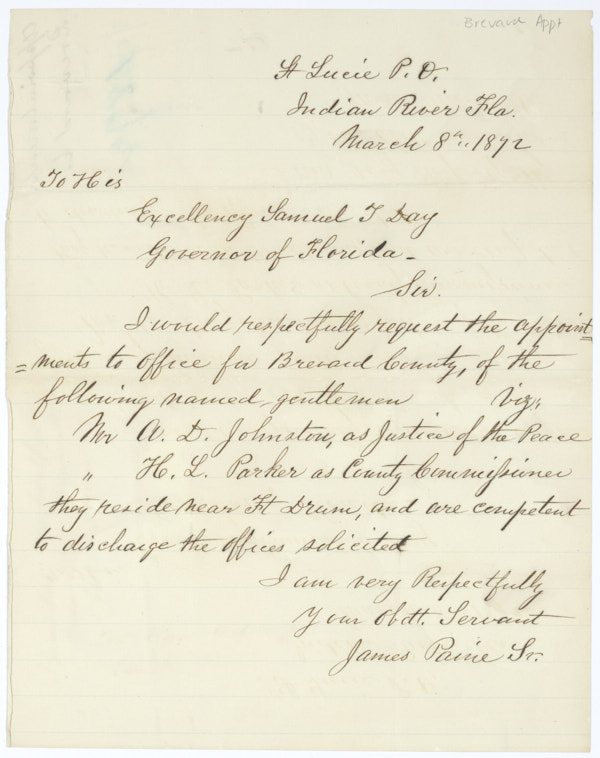 Brevard Appt
St Lucie P. O.
Indian River Fla.
March 8th, 1872
To His
Excellency Samuel T Day
Governor of Florida -
Sir.
I would respectfully request the appoint=
=ments to office for Brevard County, of the
following named gentlemen Viz,
Mr A. D. Johnston, as Justice of the Peace
" H. L. Parker as County Commissioner
they reside near Ft Drum, and are competent
to discharge the offices solicited
I am very Respectfully
Your Obdt. Servant
James Paine Sr.